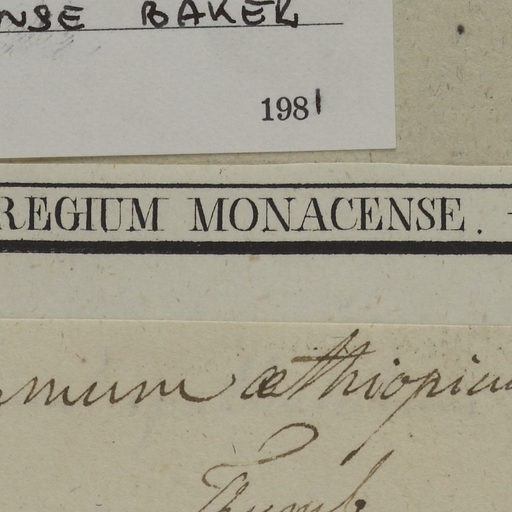 NSE BAKER
1981
REGIUM MONACENSE.
mum æthiopicu
Thunb